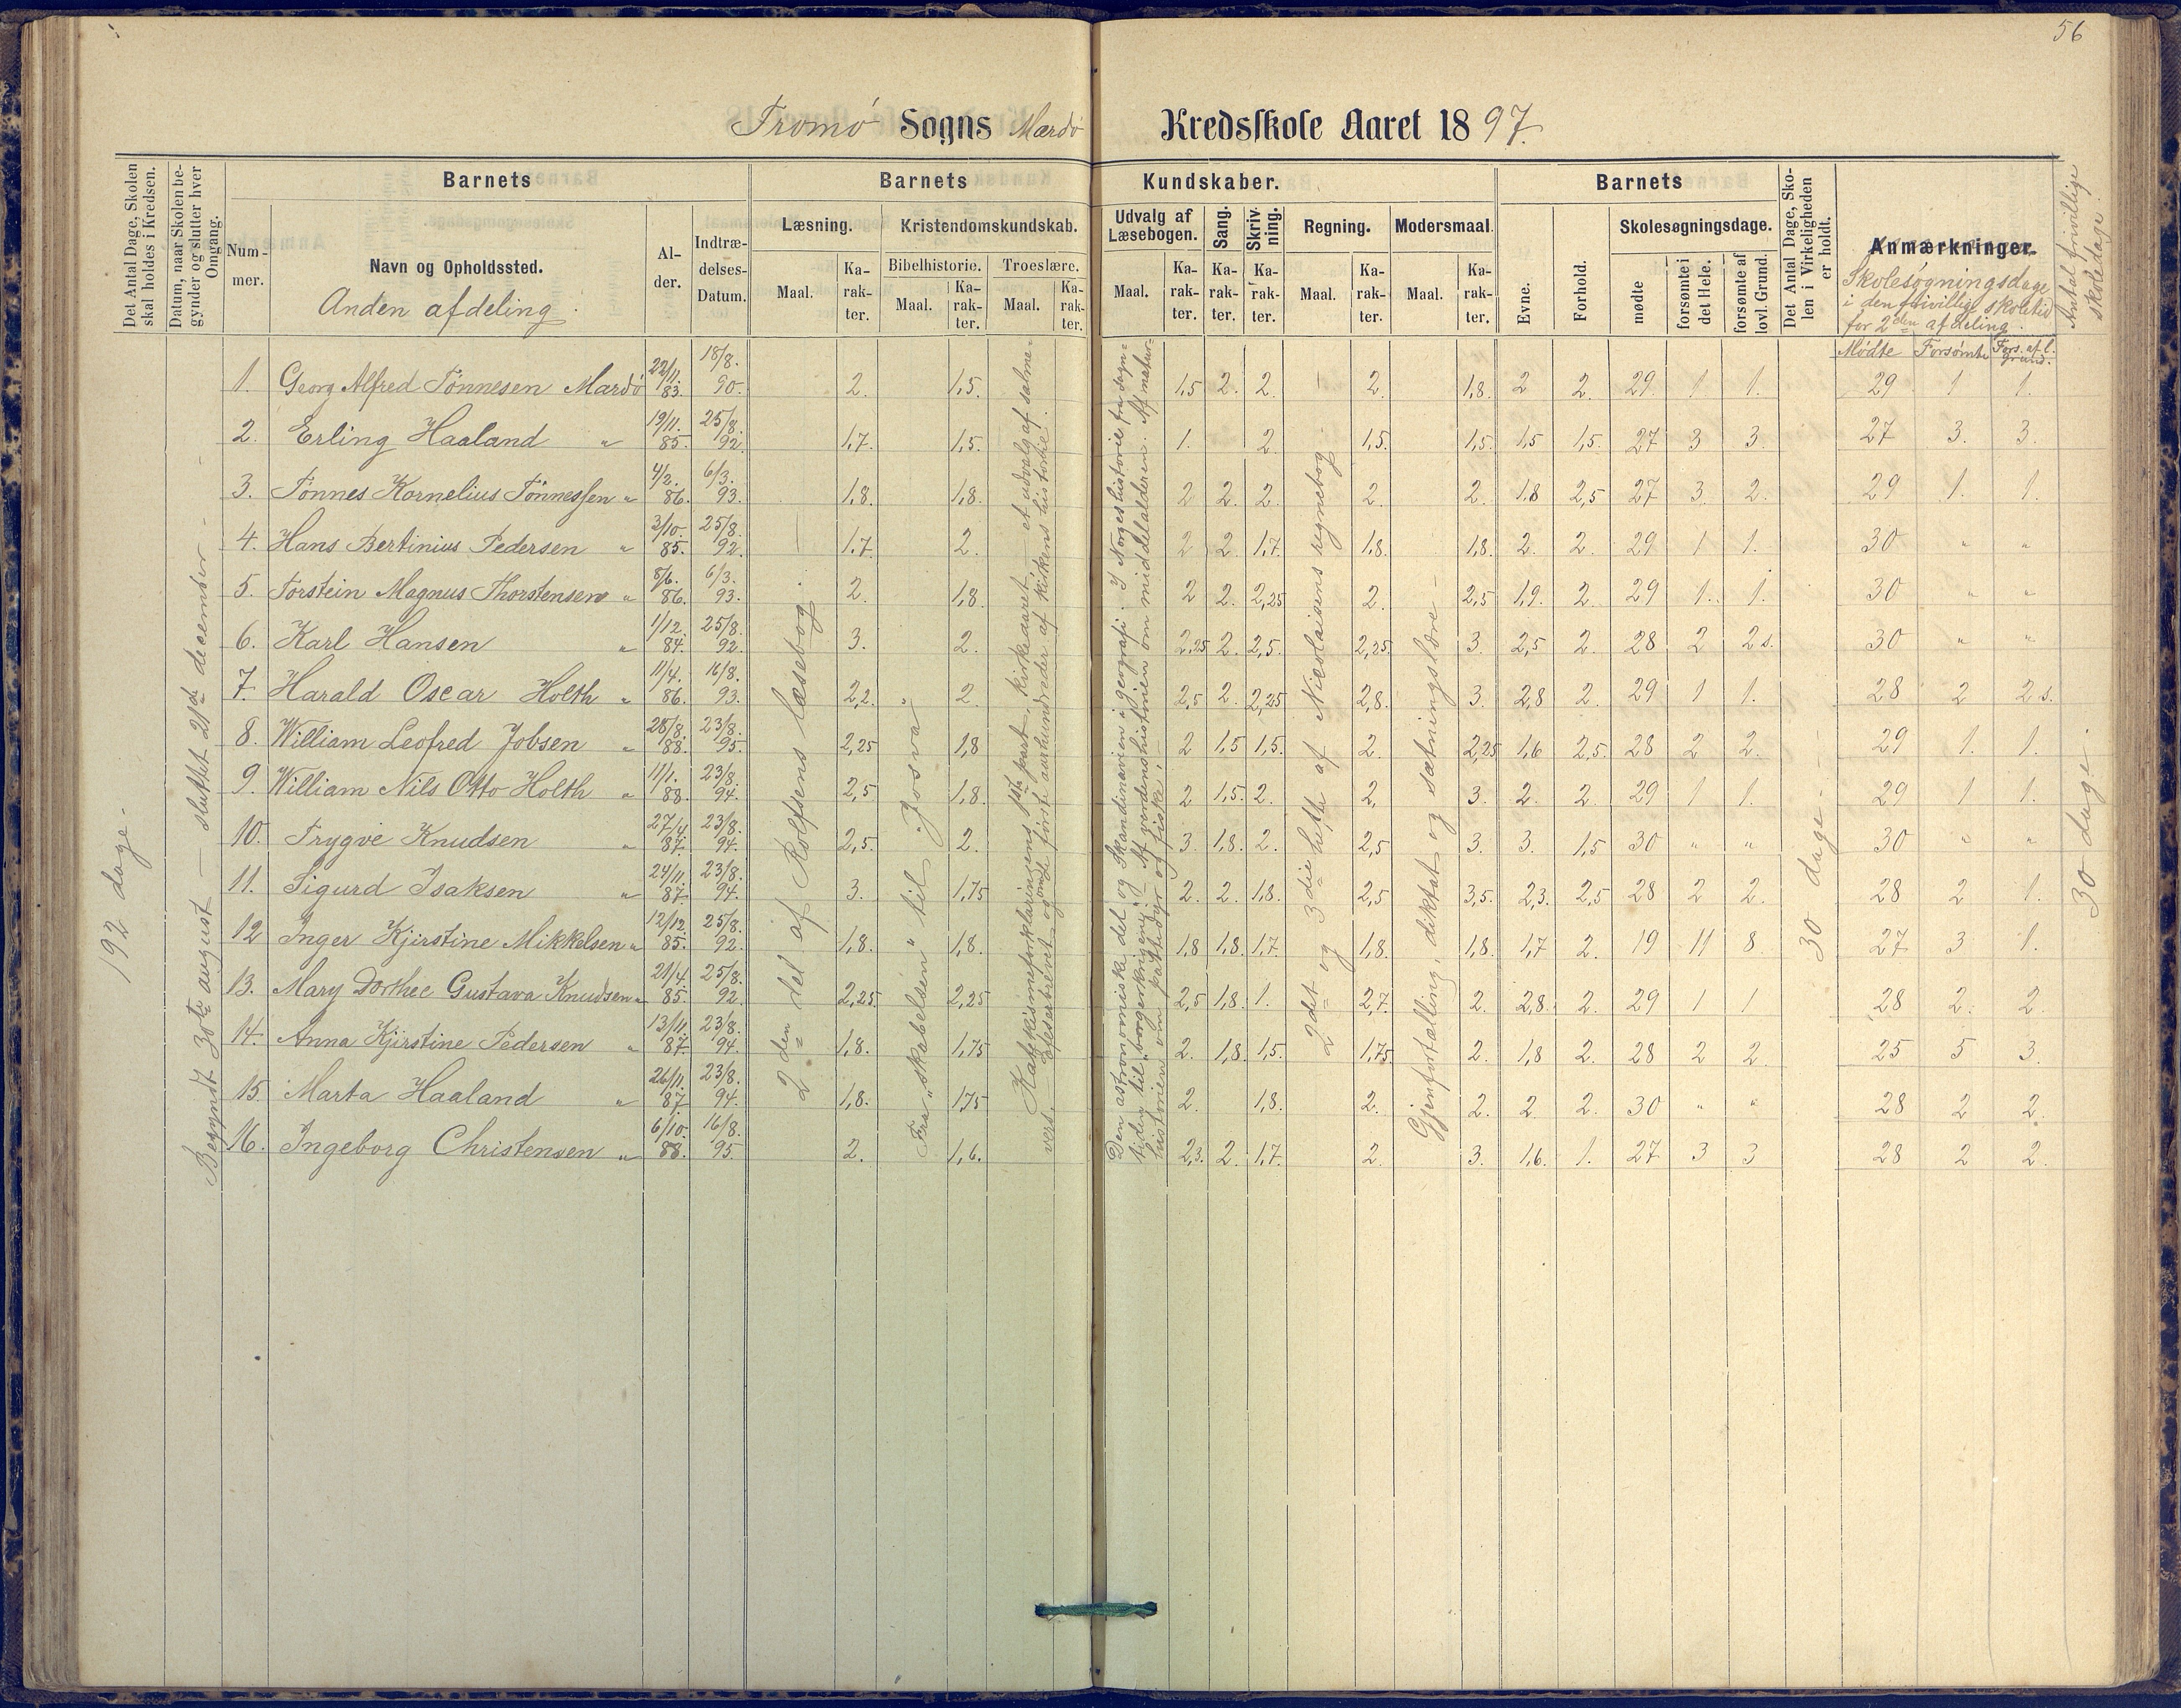 56
Tromö Sogns Mardö Kredsskole Aaret 1897.
Det Antal Dage, Skolen skal holdes i Kredsen.
Datum, naar Skolen begynder og slutter hver Omgang.
Barnets
Barnets Kundskaber.
Barnets
Det Antal Dage, Skolen i Virkeligheden er holdt.
Anmærkninger.
Antal frivillige skoledage.
Nummer.
Navn og Opholdssted.
Anden afdeling.
Alder.
Indtrædelses-Datum.
Læsning.
Kristendomskundskab.
Udvalg af Læsebogen.
Sang.
Skrivning.
Regning.
Modersmaal.
Evne.
Forhold.
Skolesøgningsdage.
Bibelhistorie. Troeslære.
Maal. Karakter. Maal. Karakter. Maal. Karakter. Maal. Karakter. Karakter. Karakter. Maal. Karakter. Maal. Karakter.
mødte
forsømte i det Hele.
forsømte af lovl. Grund.
Skolesøgningsdage
i den frivillige skoletid
for 2den afdeling.
Mødte Forsømte Fors. af l. grund.
1. Georg Alfred Tönnesen Mardö 22/11. 83. 18/8. 90. 2. 1,5. 1,5 2. 2. 2. 1,8. 2 2. 29. 1 1. 29 1 1.
2. Erling Haaland " 19/11. 85. 25/8. 92. 1,7. 1,5. 1. 2. 1,5. 1,5. 1,5 1,5. 27 3 3. 27 3. 3.
3. Tönnes Kornelius Tönnessen " 4/2. 86. 6/3. 93. 1,8. 1,8. 2 2. 2. 2. 2. 1,8 2,5 27 3. 2. 29 1. 1.
4. Hans Bertinius Pedersen " 3/10. 85. 25/8. 92. 1,7. 2. 2 2. 1,7. 1,8. 1,8. 2. 2. 29 1 1. 30 " "
5. Torstein Magnus Thorstensen " 8/6. 86. 6/3. 93. 2. 1,8. 2 2. 2,25 2. 2,5 1,9. 2. 29 1. 1. 30 " "
6. Karl Hansen " 1/12. 84. 25/8. 92. 3. 2. 2,25 2. 2,5. 2,25. 3. 2,5 2. 28 2 2 s. 30 " "
7. Harald Oscar Holth " 11/4. 86. 16/8. 93. 2,2. 2. 2,5 2. 2,25 2,8. 3. 2,8 2. 29 1 1. 28 2 2 s.
8. William Leofred Jobsen " 28/8. 88. 23/8. 95. 2,25 1,8 2 1,5 1,5. 2. 2,25 1,6 2,5. 28 2 2. 29 1. 1.
9. William Nils Otto Holth " 11/1. 88. 23/8. 94. 2,5 1,8. 2 1,5. 2. 2. 3. 2. 2. 29 1 1. 29 1 1.
10. Trygve Knudsen " 27/4. 87. 23/8. 94. 2,5. 2. 3. 1,8. 2. 2,5 3. 3. 1,5 30 " " 30 " "
11. Sigurd Isaksen " 24/11. 87. 23/8. 94. 3. 1,75 2. 2. 1,8. 2,5 3,5. 2,3. 2,5 28 2 2. 28 2 1.
12 Inger Kjirstine Mikkelsen " 12/12. 85. 25/8. 92. 1,8. 1,8. 1,8 1,8. 1,7. 1,8. 1,8. 1,7 2. 19 11 8. 27 3 1.
13. Mary Dorthee Gustava Knudsen " 21/4. 85. 25/8. 92. 2,25. 2,25 2,5 1,8. 1. 2,7. 2. 2,8. 2. 29 1 1 28 2. 2.
14. Anna Kjirstine Pedersen " 13/11. 87. 23/8. 94. 1,8. 1,75 2. 1,8. 1,5. 1,75. 2. 1,8 2. 28 2 2. 25 5 3.
15. Marta Haaland " 26/11. 87 23/8. 94. 1,8. 1,75 2. 1,8. 2. 2. 2. 2. 30 " " 28 2 2.
16. Ingeborg Christensen " 6/10. 88. 16/8. 95. 2. 1,6. 2,3. 2. 1,7. 2. 3. 1,6. 1. 27 3 3 28 2 2.
192 dage.
Begyndt 30te august — sluttet 21de december.
2den del af Rolfsens læsebog.
Fra "skabelsen" til "Josva"
Katekismeforklaringens 1ste part. kirkeaaret et udvalg af salmevers.
af kirkens historie.
Den astronomiske del og Skandinavien i geografi. I Norges historie fra
tiden til borgerkrigene. Af verdenshistorien om middelalderen. Af naturhistorien om pattedyr og fiske.
2det og 3die hefte af Nicolaisens regnebog
Gjenfortælling, diktat og sætningslære.
30 dage.
30 dage.